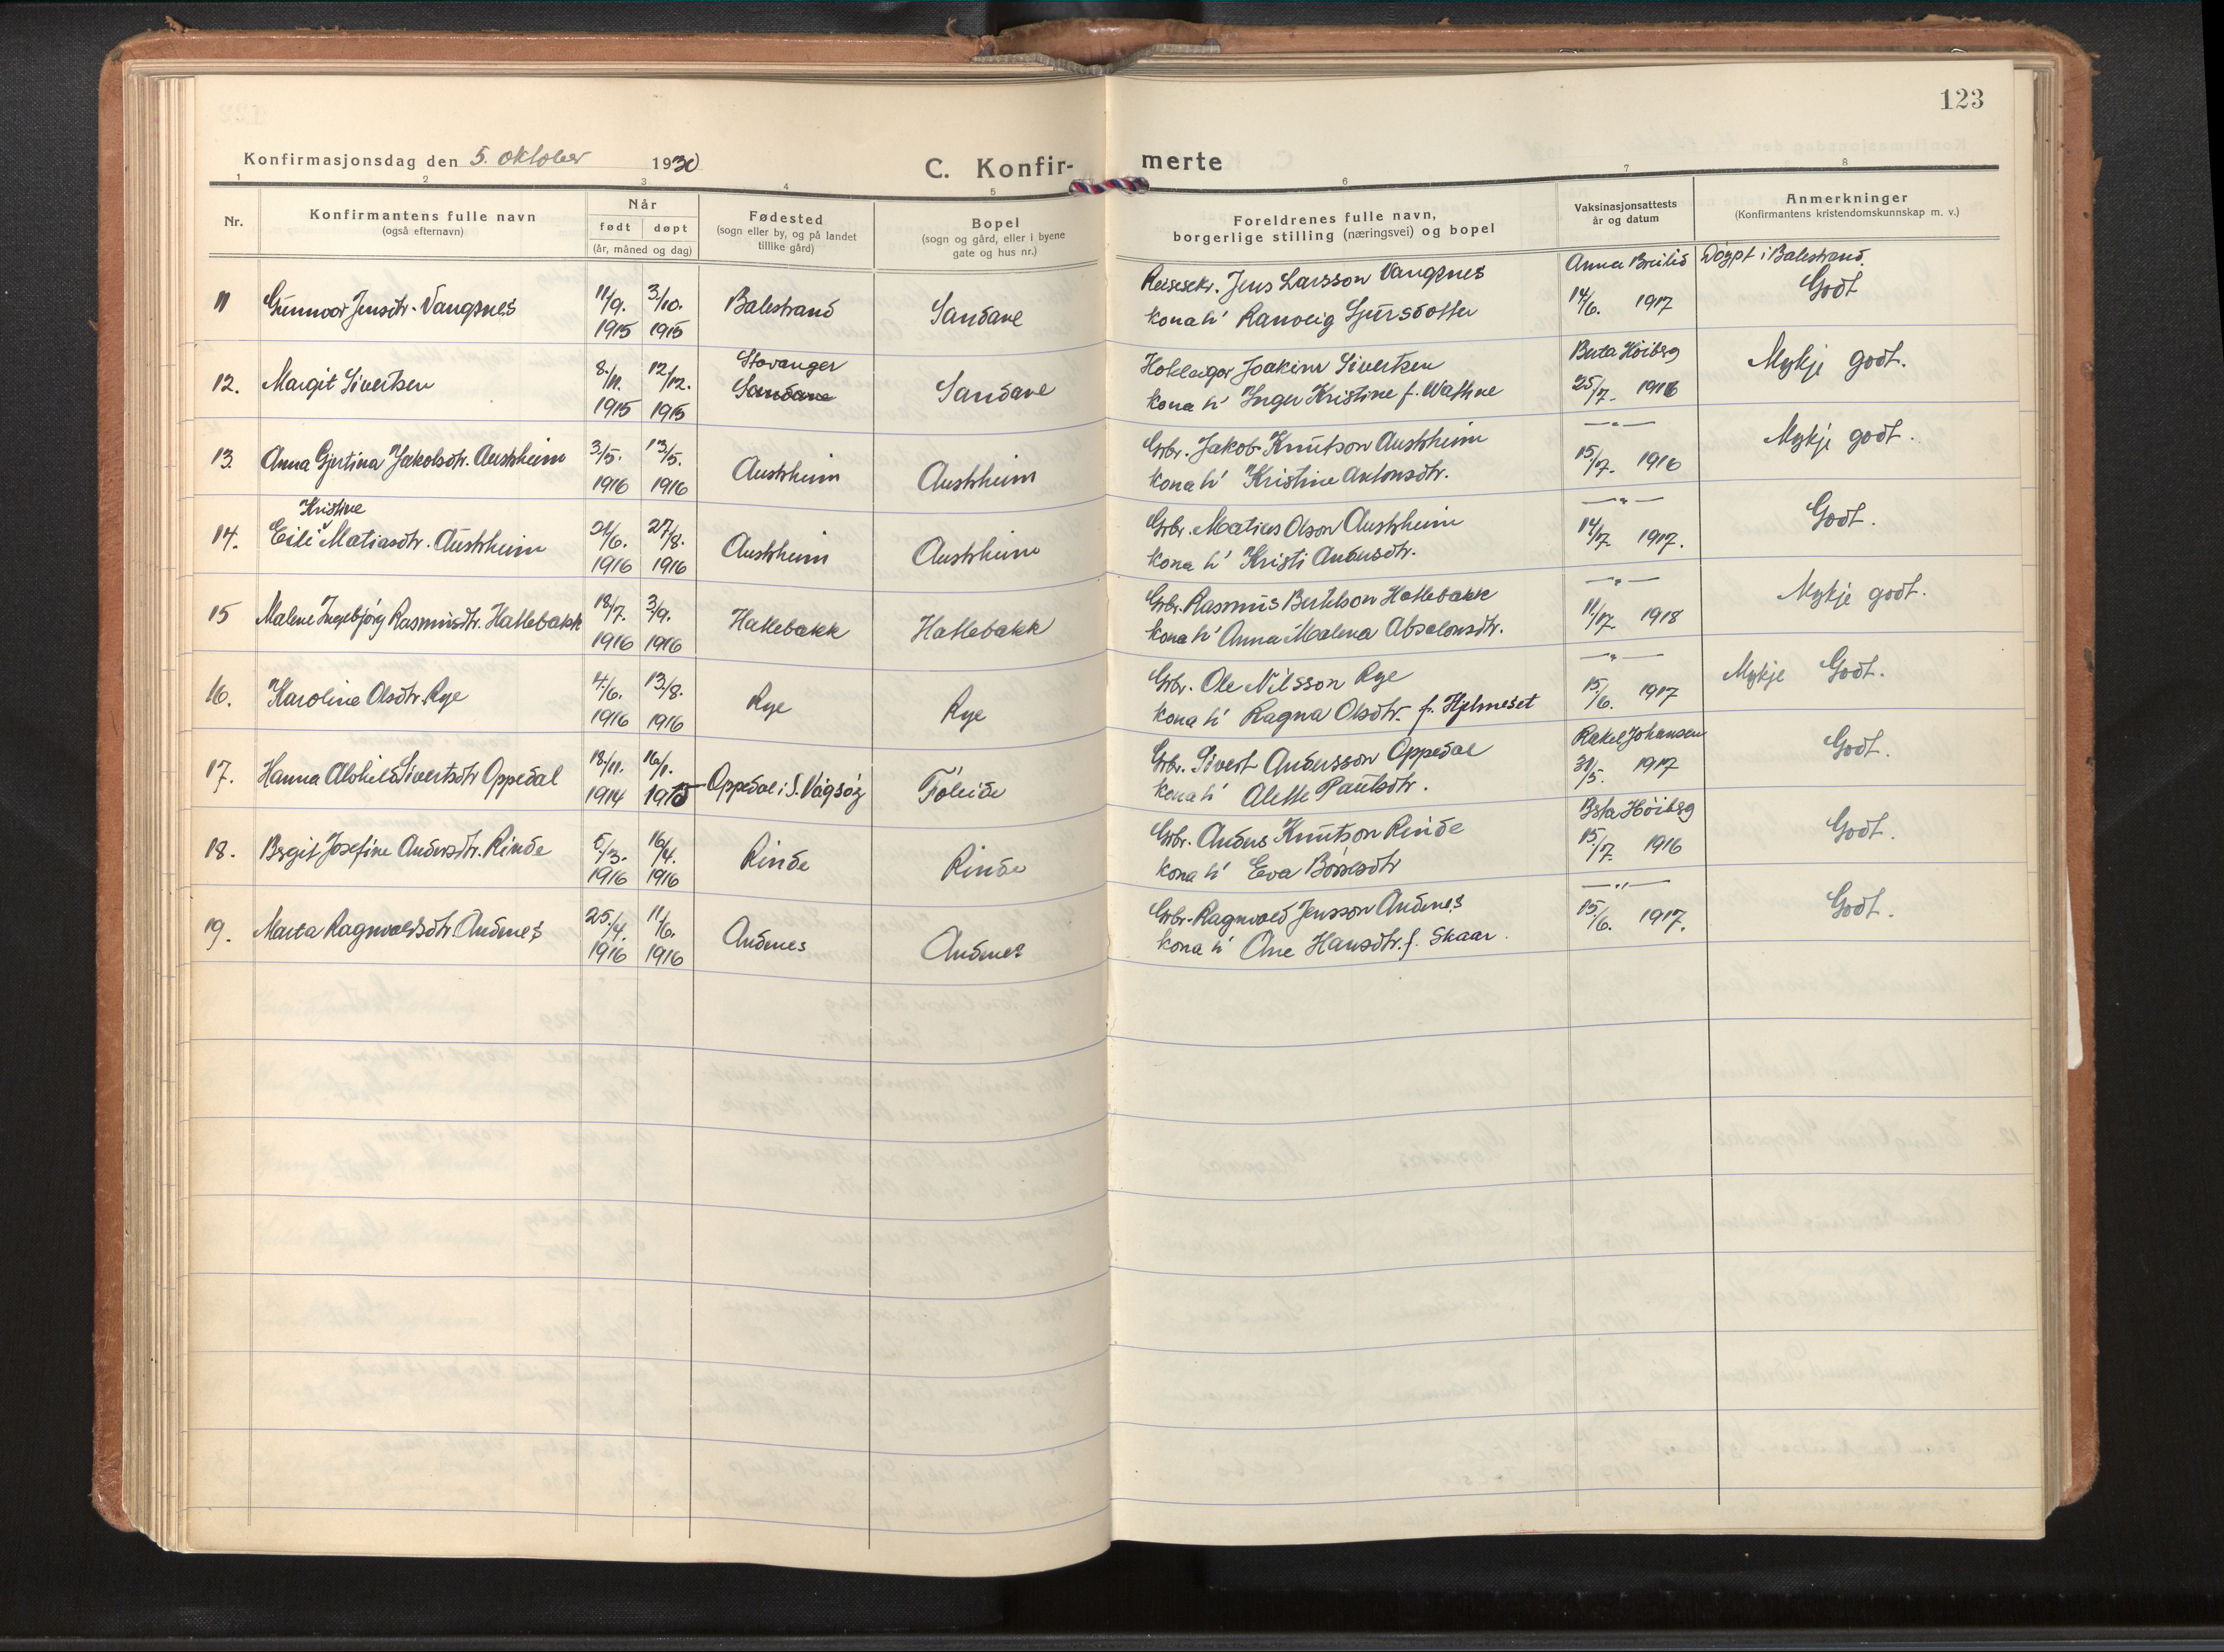 123
Konfirmasjonsdag den 5. oktober 1930
C. Konfir-
merte
1 2 3 4 5 6 7 8
Nr.
Konfirmantens fulle navn
(også efternavn)
Når
født døpt
(år, måned og dag)
Fødested
(sogn eller by, og på landet
tillike gård)
Bopel
(sogn og gård, eller i byene
gate og hus nr.)
Foreldrenes fulle navn,
borgerlige stilling (næringsvei) og bopel
Vaksinasjonsattests
år og datum
Anmerkninger
(Konfirmantens kristendomskunnskap m. v.)
Reisesekr. Jens Larsson Vangsnes Anna Breilid Døypt i Balestrand.
11 Gunnvor Jensdtr. Vangsnes 11/9. 3/10. Balestrand Sandane 14/6. 1917 Godt
1915 1915 kona h' Ranveig Sjursdotter
Stavanger Hotelleigar Joakim Sivertsen Berta Høiberg
12. Margit Sivertsen 8/11. 12/12. Sandane Sandane 25/7. 1916 Mykje godt.
1915 1915 kona h' Inger Kristine f. Wathne
Gbr. Jakob Knutson Austrheim —"—
13. Anna Gjertina Jakobsdtr. Austrheim 3/5. 13/5. Austrheim Austrheim 15/7. 1916 Mykje godt.
1916 1916 kona h' Kristine Antonsdtr.
Kristine Gbr. Matias Olson Austrheim —"—
14. Eili Matiasdtr. Austrheim 21/6. 27/8. Austrheim Austrheim 14/7. 1917. Godt.
1916 1916 kona h' Kristi Andersdtr.
Gbr. Rasmus Bertelson Hattebakk —"—
15 Malene Ingebjørg Rasmusdtr. Hattebakk 18/7. 3/9. Hattebakk Hattebakk 11/7. 1918 Mykje godt.
1916 1916 kona h' Anna Malena Absalonsdtr.
Gbr. Ole Nilsson Rye —"—
16. Karoline Olsdtr. Rye 4/6. 13/8. Rye Rye 15/6. 1917 Mykje Godt.
1916 1916 kona h' Ragna Olsdtr. f. Hjelmeset
Gbr. Sivert Andersson Oppedal Rakel Johansen
17. Hanna Alvhild Sivertsdtr Oppedal 18/11. 16/1. Oppedal i S. Vågsøy 31/5. 1917 Godt.
1914 1915 kona h' Alette Paulsdtr.
Gbr. Anders Knutson Rinde Bsta Høiberg
18. Bsgit Josefine Andersdtr. Rinde 5/3. 16/4. Rinde Rinde 15/7. 1916 Godt.
1916 1916 kona h' Eva Børresdtr
Gbr. Ragnvald Jensson Andnes —"—
19. Marta Ragnvaldsdtr. Andnes 25/4. 11/6. Andnes Andnes 15/6. 1917. Godt.
1916 1916 kona h' Ane Hansdtr. f. Skaar.